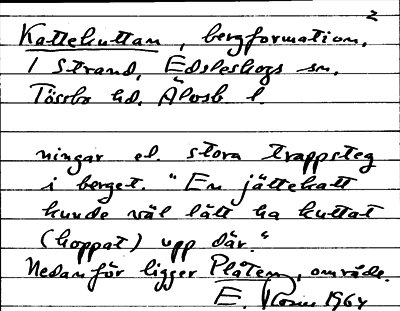 2
Kattekuttan, bergformation.
I Strand, Edsleskogs sn.
Tössbo hd. Älvsb l.
ningar el. stora trappsteg
i berget. "En jättekatt
kunde väl lätt ha kuttat
(hoppat) upp där."
Nedanför ligger Plåten, område.
E. 1964